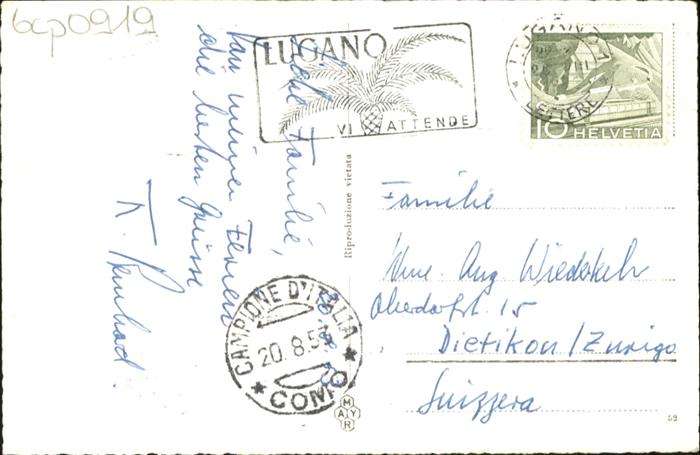 bcp0919
LUGANO
VI ATTENDE
LUGANO
LETTERE
10 HELVETIA
Liebe Familie,
Von meinen Ferien
die besten Grüsse
Riproduzione vietata
CAMPIONE D'ITALIA
20.8.53
COMO
MAYR
Familie
Aug. Wiederkehr
Oberdorfst. 15
Dietikon/Zurigo
Suizzera
59